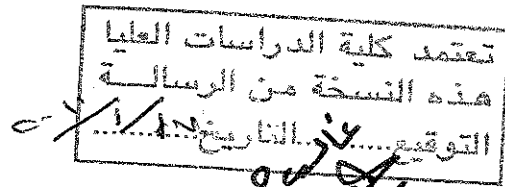 تعتمد كلية الدراسات العليا
هذه النسخة من الرسالــة
التوقيع.......التاريخ.......